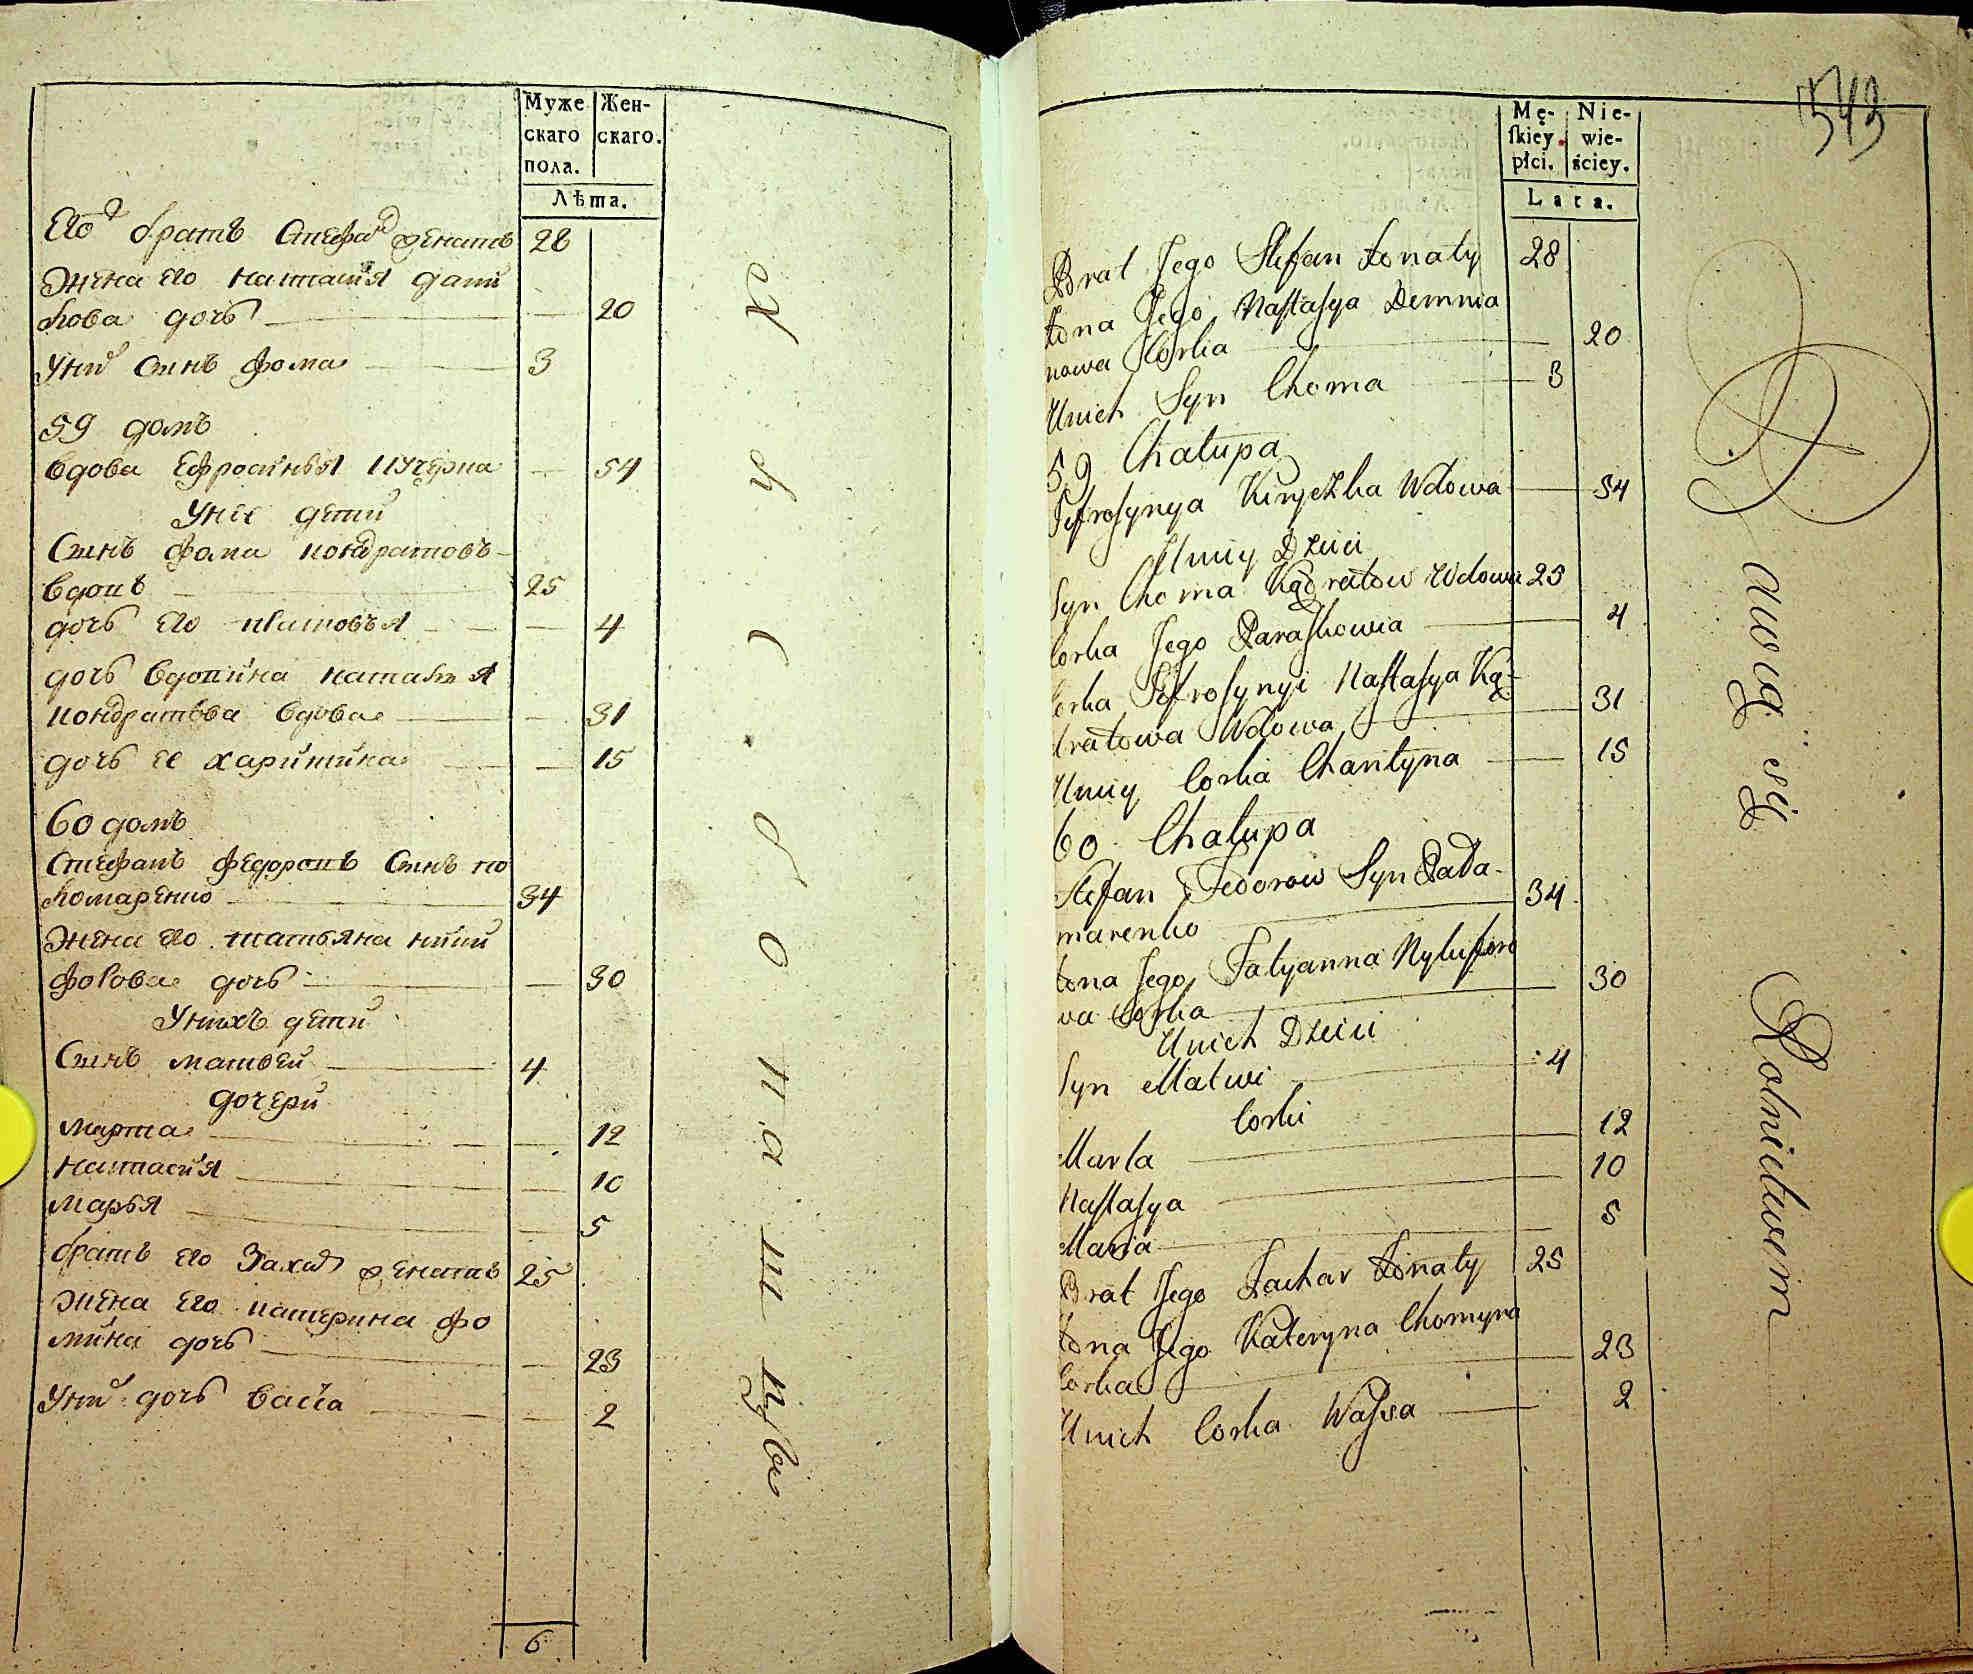 Муже
скаго
пола.
Жен-
скаго.
Лѣта.
Его братъ Стефан женатъ 28
Жена его настасия деми
нова дочь 20
У них сынъ фома 3
59 домъ
вдова Ефросинья кучерка 54
У нее дети
Сынъ фома кондратовъ
вдовъ 25
дочь его 4
дочь вдовина настасья
кондратова вдова 31
дочь ее харитина 15
60 домъ
Стефанъ федоровъ Сынъ по
номаренко 34
Жена его татьяна ники
форова дочь 30
У нихъ дети
Сынъ матвей 4
дочери
марта 12
настасия 10
марья 5
братъ его Захар женатъ 25
жена его катерина фо
мина дочь 23
У них дочь васса 2
6
хлебопашцы
543
Mę-
ſkiey
płci.
Nie-
wie-
ściey.
Lata.
Brat Jego Stefan żonaty 28
żona Jego Naſtaſya Demnia
nowa Corka 20
Unich Syn Choma 3
59 Chałupa
Jefroſynya Kuryczka Wdowa 54
Uniey Dzieci
Syn Choma Kądratow Wdowiec 25
Corka Jego Paraſkowia 4
Corka Jefroſynyi Naſtaſya Ką-
dratowa Wdowa 31
Uniey Corka Charytyna 15
60 Chałupa
Stefan Fedorow Syn Pada-
marenko 34
żona Jego Tatyanna Nykyforo
wa Corka 30
Unich Dzieci
Syn Matwi 4
Corki
Marta 12
Naſtaſya 10
Maria 5
Brat Jego Zachar żonaty 25
żona Jego Kateryna Chomyna
Corka 23
Unich Corka Waſsa 2
Bawią się Rolnictwem